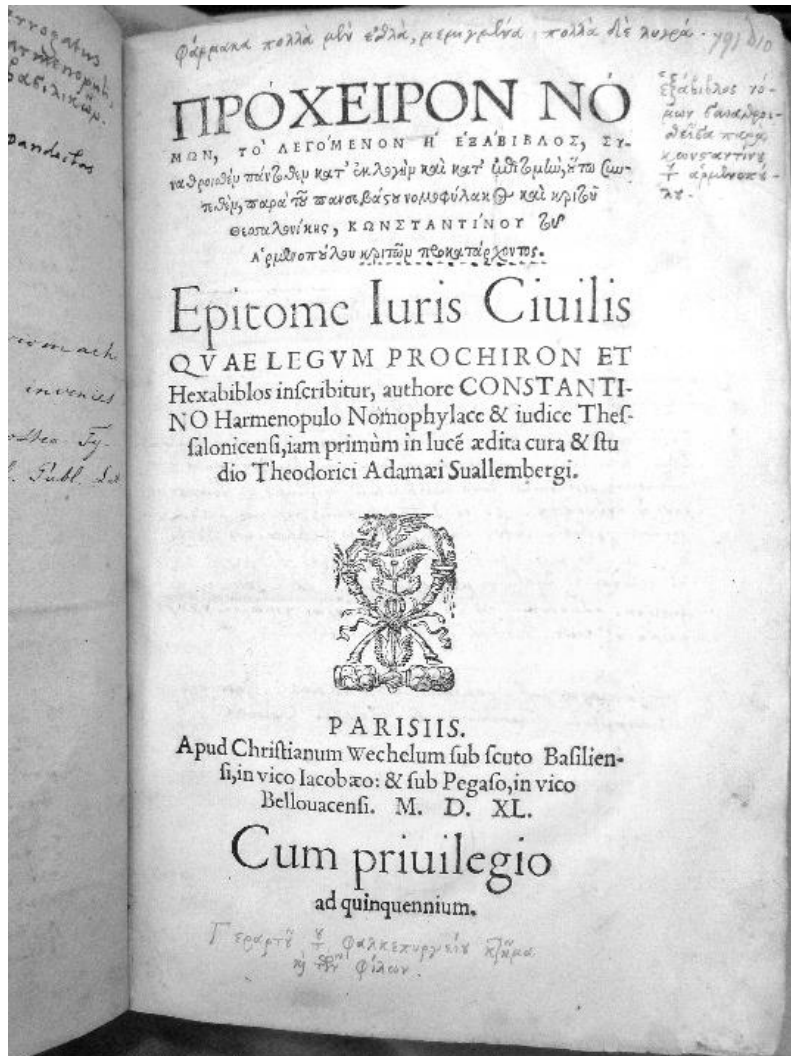 φάρμακα πολλὰ μὲν ἐσθλὰ, μεμιγμένα, πολλὰ δὲ λυγρά.
ΠΡΌΧΕΙΡΟΝ ΝΌ
ΜΩΝ, ΤῸ ΛΕΓΌΜΕΝΟΝ Ἡ ἙΞΆΒΙΒΛΟΣ, ΣΥ-
ναθροισθὲν πάντοθεν κατ' ἐκλογὴν καὶ κατ'
πεθὲν, παρὰ τοῦ πανσεβάστου νομοφύλακος καὶ κριτοῦ
Θεσσαλονίκης, ΚΩΝΣΤΑΝΤΊΝΟΥ τοῦ
Ἁρμενοπούλου κριτῶν προκατάρχοντος.
Epitome Iuris Ciuilis
QVAE LEGVM PROCHIRON ET
Hexabiblos inſcribitur, authore CONSTANTI-
NO Harmenopulo Nomophylace & iudice Theſ-
ſalonicenſi, iam primùm in lucē ædita cura & ſtu
dio Theodorici Adamæi Suallembergi.
PARISIIS.
Apud Chriſtianum Wechelum ſub ſcuto Baſilien-
ſi, in vico Iacobæo: & ſub Pegaſo, in vico
Bellouacenſi. M. D. XL.
Cum priuilegio
ad quinquennium.
ἑξάβιβλος νό-
μων συναθροι-
σθεῖσα παρὰ
κωνσταντίνου
τ ἁρμενοπού-
λου.
κτῆμα
φίλων.
pandectas
invenies
Publ.